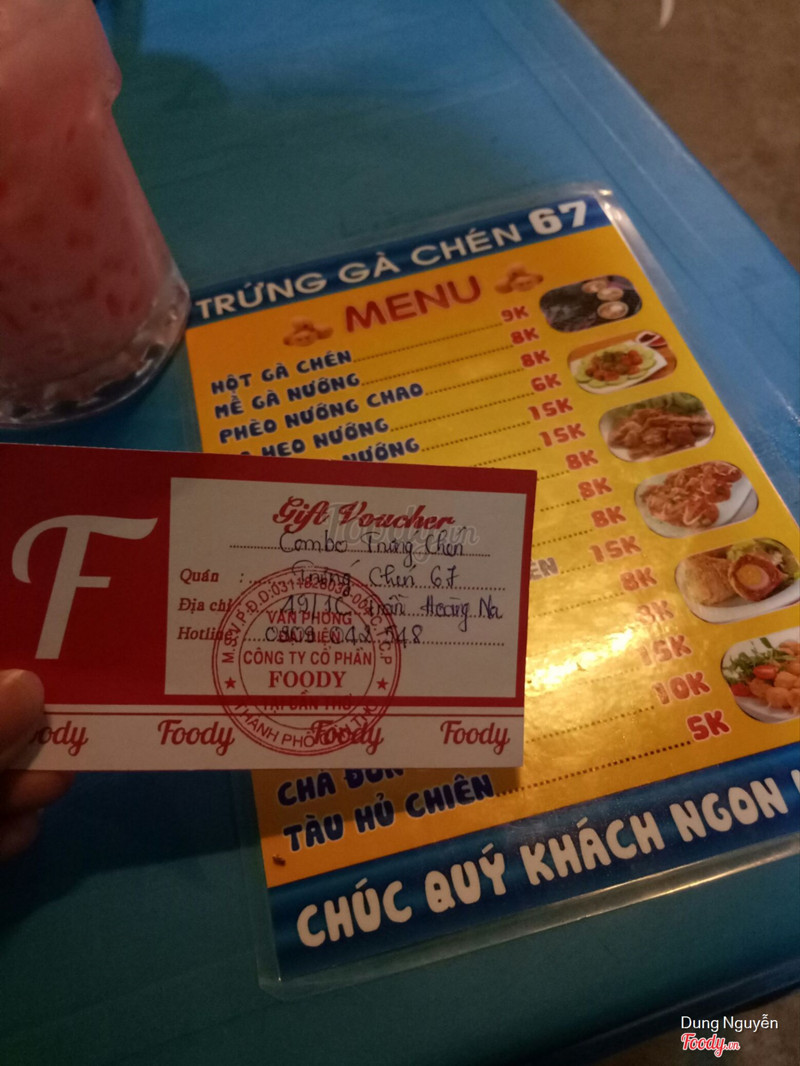 TRỨNG GÀ CHÉN 67
MENU
HỘT GÀ CHÉN 9K
MỀ GÀ NƯỚNG 8K
PHÈO NƯỚNG CHAO 8K
HEO NƯỚNG 6K
NƯỚNG 15K
15K
8K
8K
8K
15K
8K
8K
15K
10K
CHẢ
TÀU HỦ CHIÊN 5K
CHÚC QUÝ KHÁCH NGON
F
Gift Voucher
Combo Trứng Chén
Quán : Trứng Chén 67
Địa chỉ 49/1C Trần Hoàng Na
Hotline
VĂN PHÒNG
ĐẠI DIỆN
CÔNG TY CỔ PHẦN
FOODY
TẠI CẦN THƠ
Foody Foody Foody
Dung Nguyễn
Foody.vn